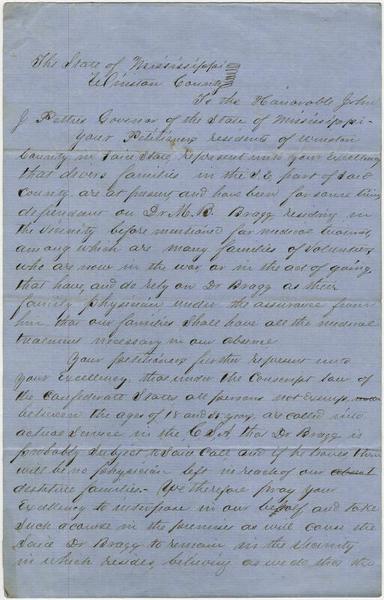 The State of Mississippi
Winston County
To the Honorable John
J Pettus Govenor of the State of Mississippi-
your Petitioners residents of Winston
County in Said State, represent unto your Excellency
that divers families in the S.E. part of Said
County are at present and have been for some time
dependant on Dr M. B. Bragg residing in
the vicinity before mentioned for medical
among which are many families of Volunteers
who are now in the war or in the act of going
that have, and do rely on Dr Bragg as their
family physician under the assurance from
him that our families Shall have all the medical
treatment necessary in our absence
Your petitioners further represent unto
your Excellency, that under the Conscript law of
the Confederate States all persons not Exempt
between the ages of 18 and are called into
actual service in the C.S.A that Dr Bragg is
probably subject to Said call and if he leaves there
will be no physician left in reach of our
destitute families- We therefore pray your
Excellency to interpose in our behalf and take
Such a course in the premises as will cause the
Said Dr Bragg to remain in the vicinity
in which resides, believing as we do that the